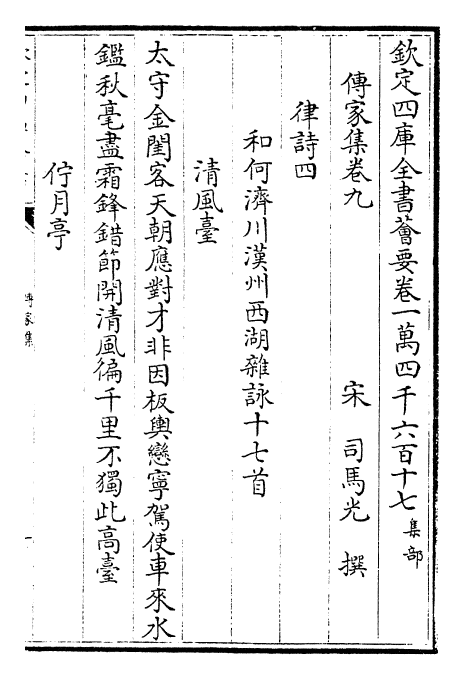 欽定四庫全書薈要卷一萬四千六百十七集部
傳家集卷九　宋　司馬光　撰
律詩四
和何濟川漢州西湖雜詠十七首
清風臺
太守金閨客天朝應對才非因板輿戀寧駕使車來水
鑑秋毫盡霜鋒錯節開清風徧千里不獨此高臺
佇月亭
傳家集